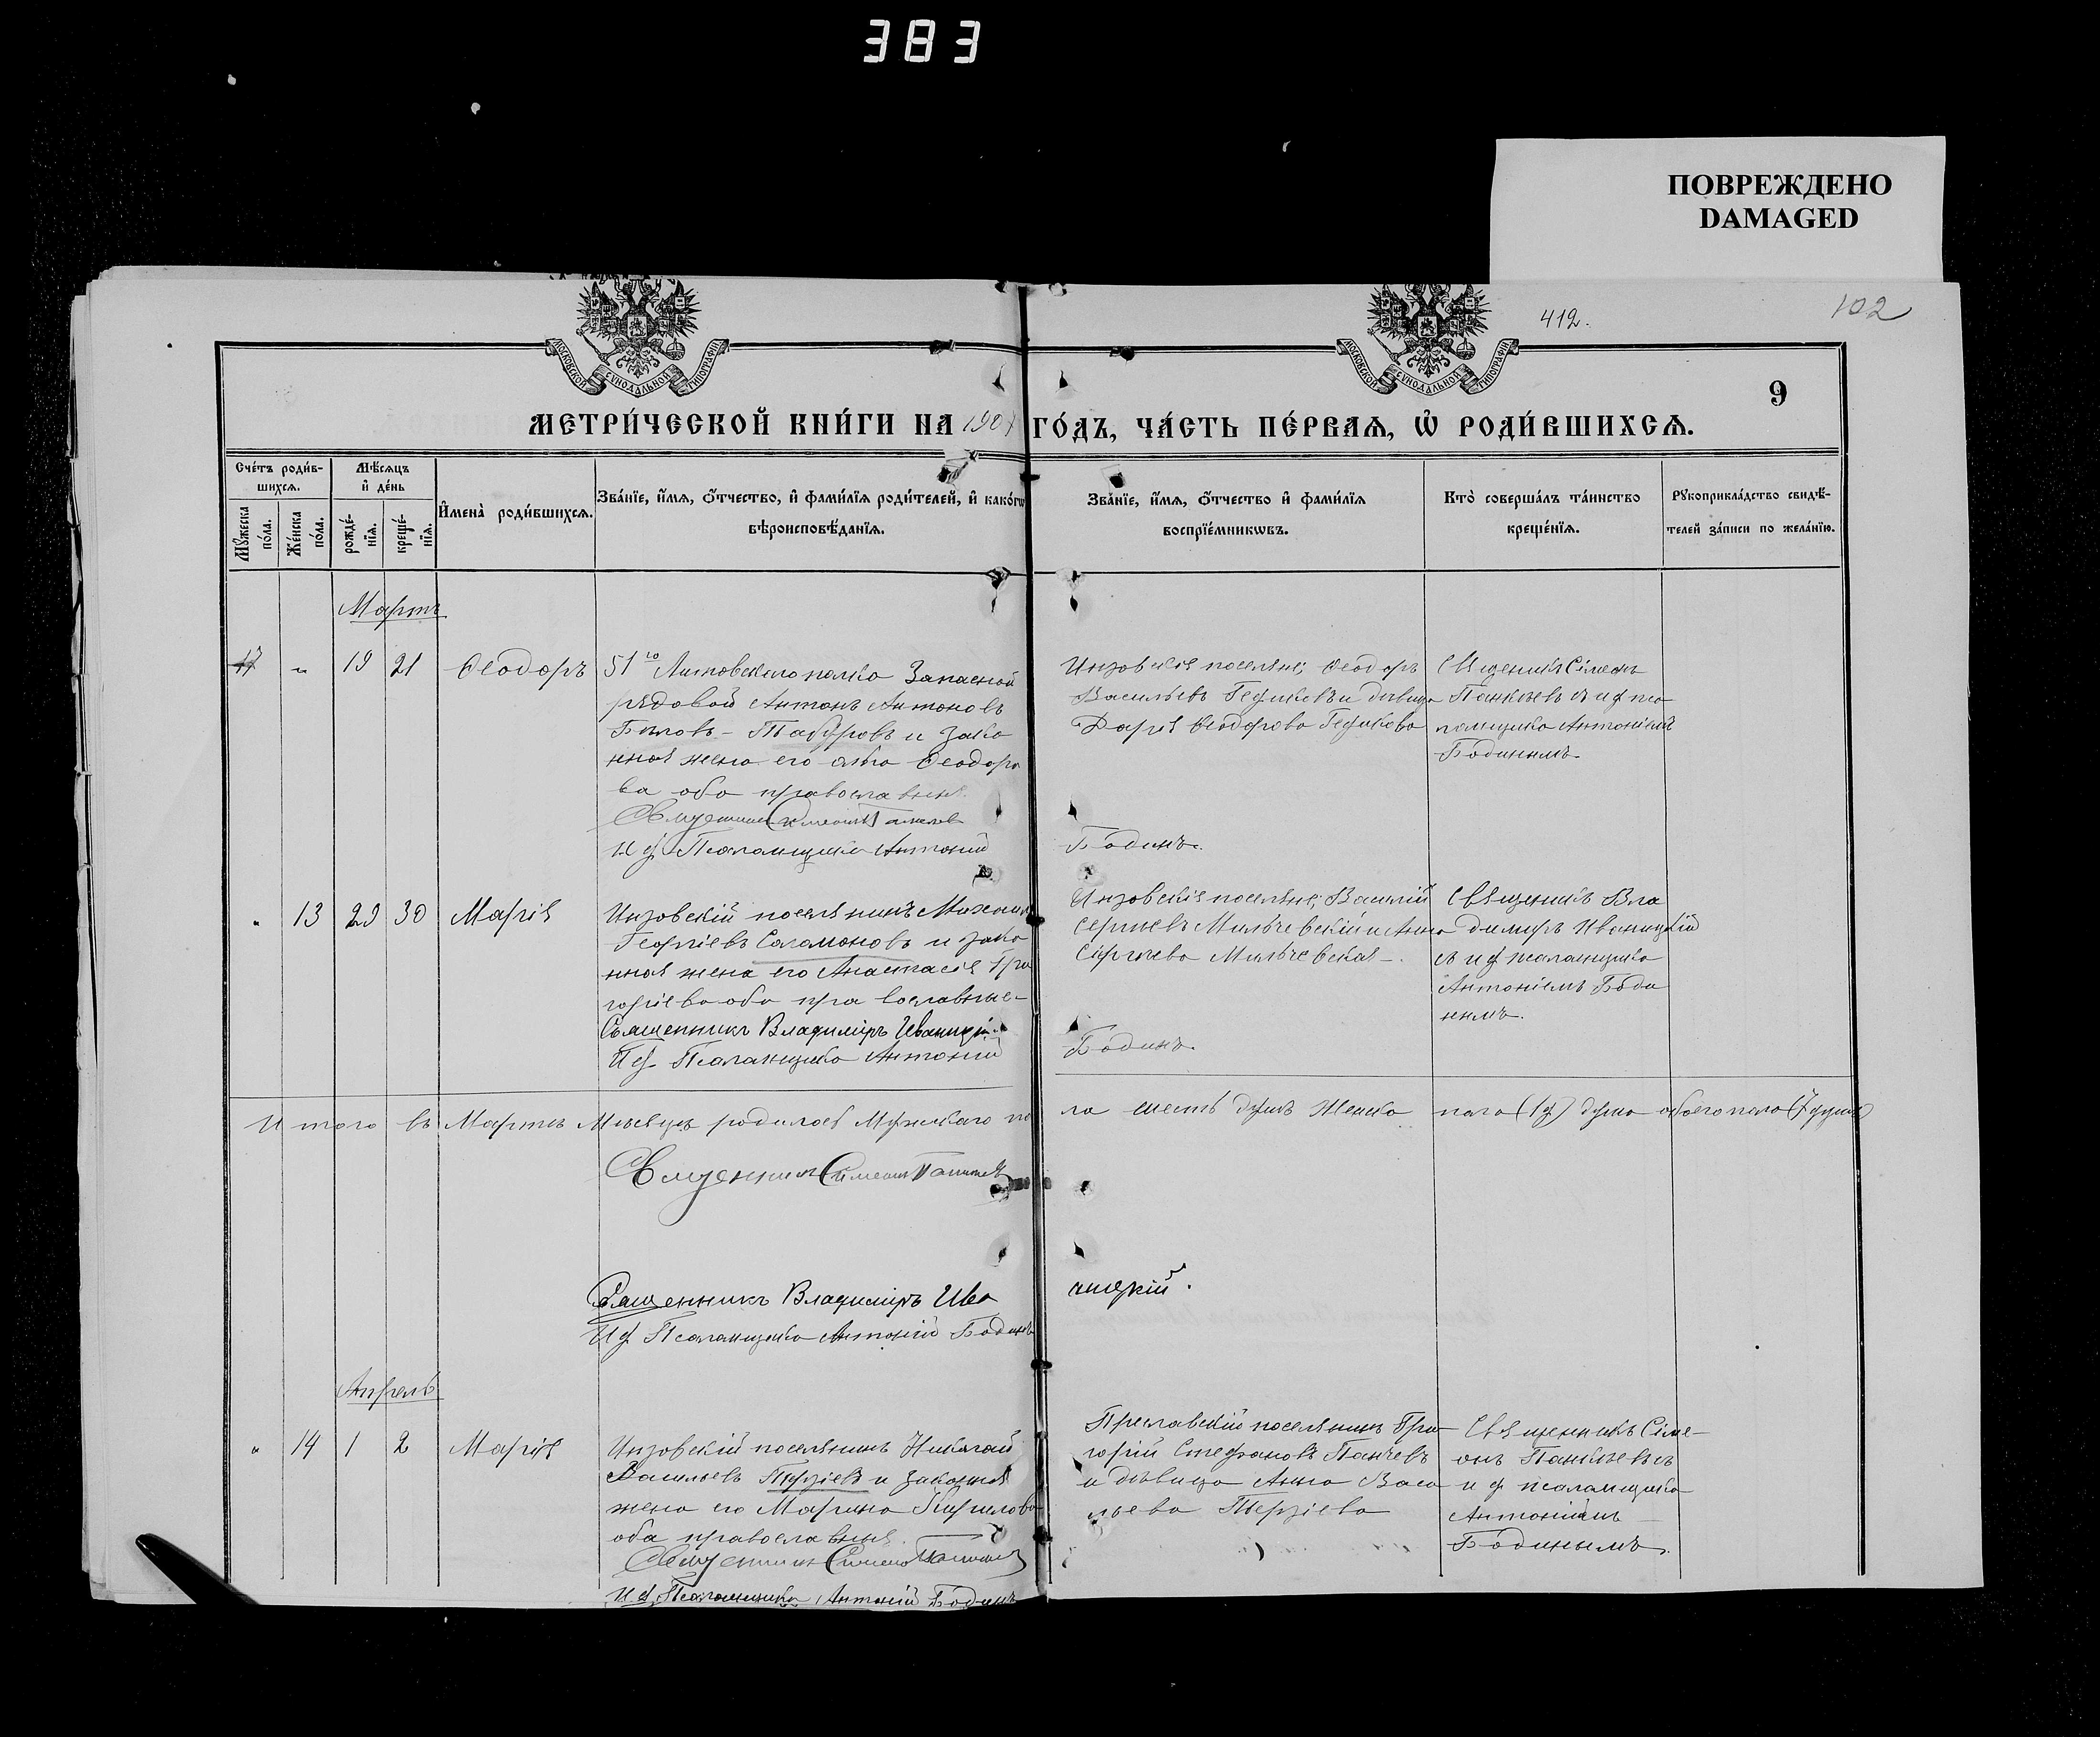 383
ПОВРЕЖДЕНО
DAMAGED
412.
102
МОСКОВСКОЙ СѴНОДАЛЬНОЙ ТИПОГРАФІИ
МОСКОВСКОЙ СѴНОДАЛЬНОЙ ТИПОГРАФІИ
9
МЕТРИ́ЧЕСКОЙ КНИ́ГИ НА 190 ГО́ДЪ, ЧА́СТЬ ПЕ́РВАѦ, Ѡ҆ РОДИ́ВШИХСѦ.
Сче́тъ роди́в-
шихсѧ.
Мѣ́сѧцъ
и҆ де́нь
Мꙋ́жеска
по́ла.
Же́нска
по́ла.
рожде́-
нїѧ.
креще́-
нїѧ.
И҆мена̀ роди́вшихсѧ.
Зва́нїе, и҆́мѧ, ѻ҆́тчество, и҆ фами́лїѧ роди́телей, и҆ како́гѡ
вѣроисповѣ́данїѧ.
Зва́нїе, и҆́мѧ, ѻ҆́тчество и҆ фами́лїѧ
воспрїе́мникѡвъ.
Кто̀ соверша́лъ та́инство
креще́нїѧ.
Рꙋкоприкла́дство свидѣ́-
телей за́писи по жела́нїю.
Мартъ
17 " 19 21 Ѳеодоръ
51го Литовскаго полка Запасной
рядовой Антонъ Антоновъ
Бѣловъ - и зако
нная жена его Ѳеодоро
ва оба православныя.
Священникъ Симеонъ
И ф Псаломщика Антоній Бодинъ.
Инзовскія поселяне; Ѳеодоръ
Васильевъ и дѣвица
Дарія Ѳеодорова
Священикъ Сімеонъ
съ и ф пса
ломщика Антоніемъ
Бодинымъ.
" 13 29 30 Марія
Инзовскій поселянинъ Михаилъ
Георгіевъ Саламоновъ и зако
нная жена его Анастасія Гри
горіева оба православные-
Священникъ Владиміръ Иваницкій.
И ф. Псаломщика Антоній Бодинъ.
Инзовскія поселяне; Василій
Сергіевъ Мильчевскій и Анна
Сергіева Мильчевская -.
Священикъ Вла
димиръ Иваницкій
съ и ф псаломщика
Антоніемъ Боди
нымъ.
Итого въ Мартѣ Мѣсяцѣ родилося Мужскаго по ла шесть душъ Женска полаго душа обоего пола (7 душъ)
Священникъ Симеонъ
Священникъ Владиміръ Ива ницкій.
И ф Псаломщика Антоній Бодинъ
Апрель
" 14 1 2 Марія
Инзовскій поселянинъ Николай
Васильевъ Терзіевъ и законная
жена его Марина Кирилова
оба православныя.
Священникъ Симеонъ
И. ф. Псаломщика Антоній Бодинъ
Преславскій поселянинъ Гри-
горій Стефановъ Панчевъ
и дѣвица Анна Васи
льева Терзіева
Священникъ Сіме-
онъ съ
и ф псаломщика
Антоніемъ
Бодинымъ.